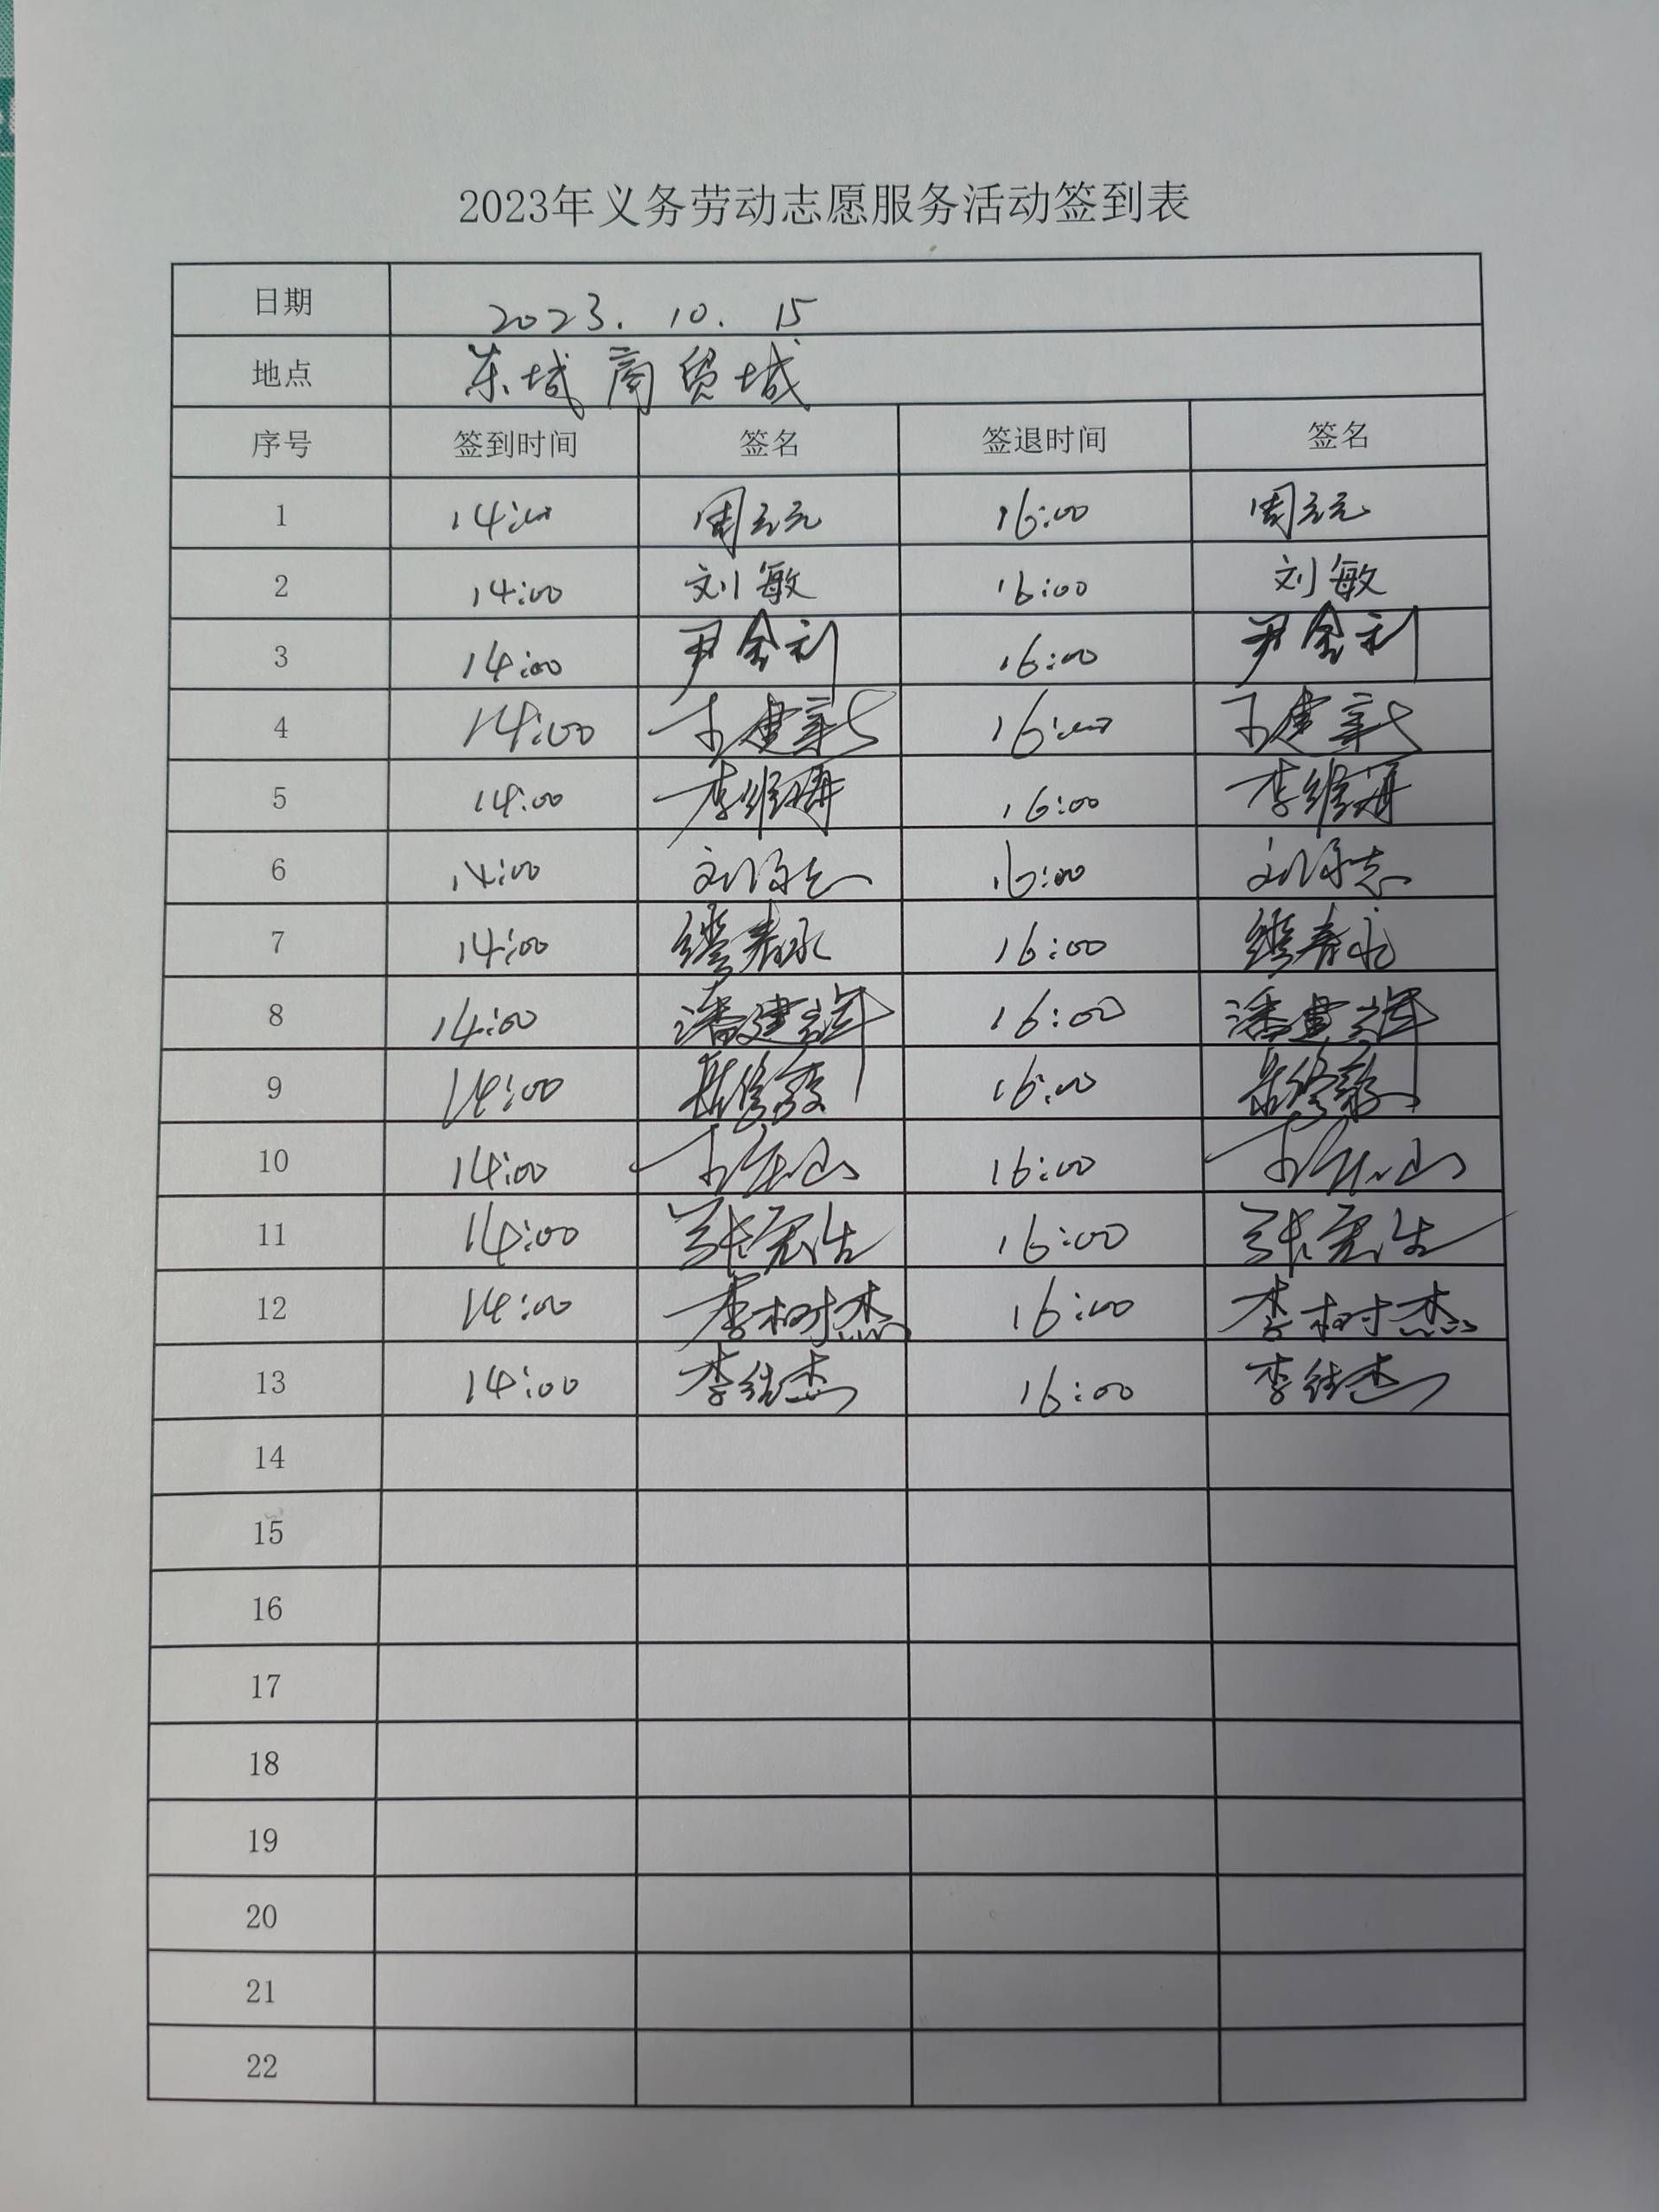 2023年义务劳动志愿服务活动签到表
日期 2023. 10. 15
地点 东城商贸城
序号 签到时间 签名 签退时间 签名
1 14:00 周元元 16:00 周元元
2 14:00 刘敏 16:00 刘敏
3 14:00 尹金利 16:00 尹金利
4 14:00 王建新 16:00 王建新
5 14:00 李维 16:00 李维
6 14:00 刘 志 16:00 刘 志
7 14:00 春永 16:00 春永
8 14:00 潘建 16:00 潘建
9 14:00 修 16:00 修
10 14:00 山 16:00 山
11 14:00 张宪生 16:00 张宪生
12 14:00 李树杰 16:00 李树杰
13 14:00 李 杰 16:00 李 杰
14
15
16
17
18
19
20
21
22